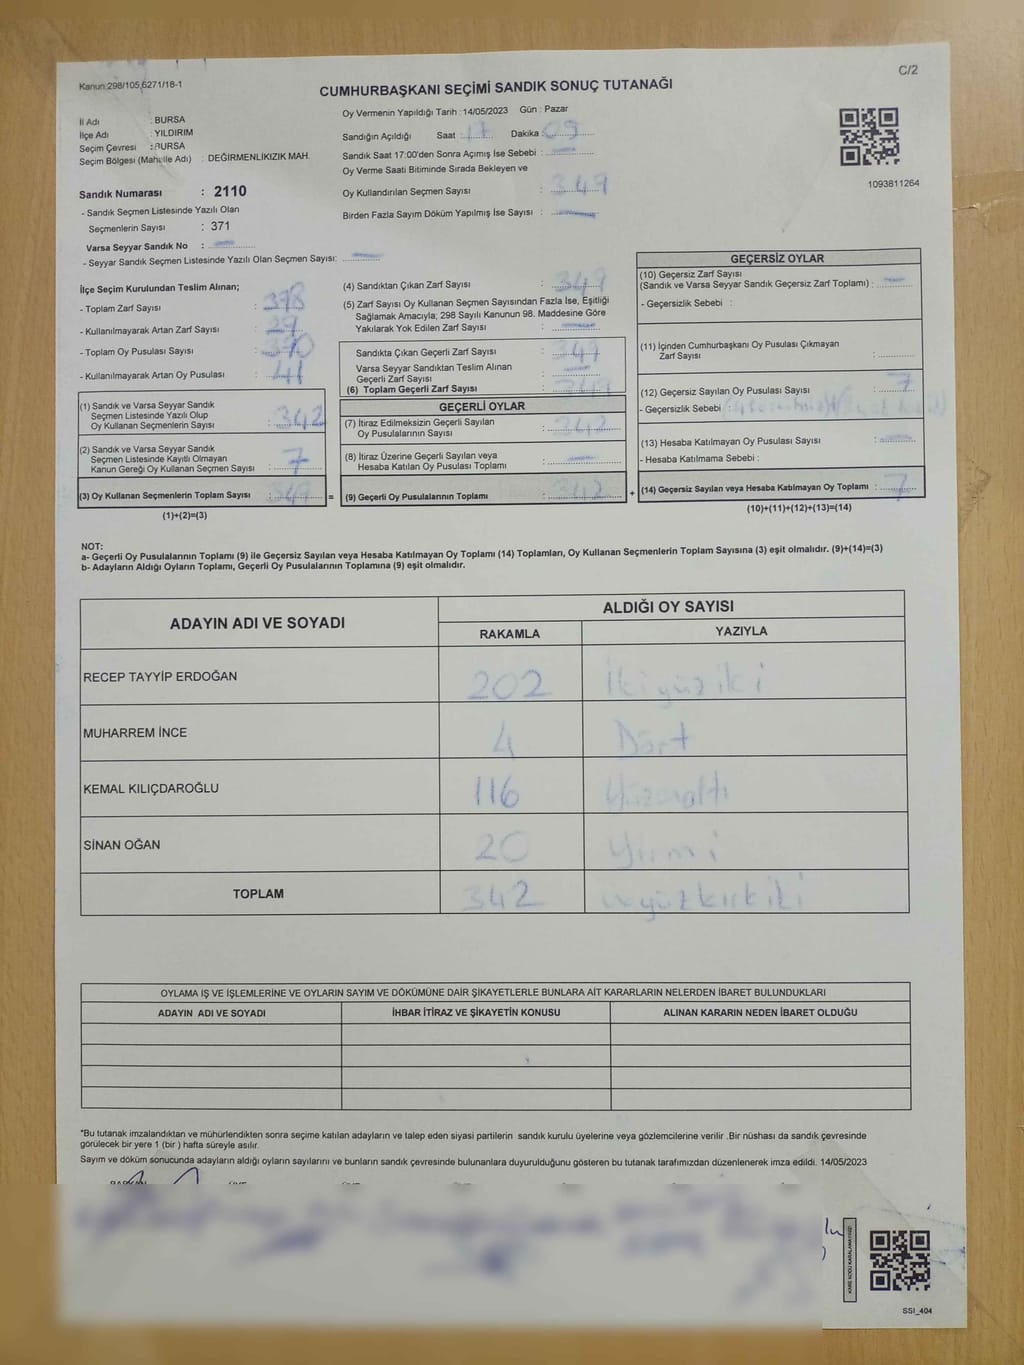 Kanun:298/105,6271/18-1
C/2
CUMHURBAŞKANI SEÇİMİ SANDIK SONUÇ TUTANAĞI
İl Adı : BURSA
İlçe Adı : YILDIRIM
Seçim Çevresi : BURSA
Seçim Bölgesi (Mahalle Adı) : DEĞİRMENLIKIZIK MAH.
Sandık Numarası : 2110
- Sandık Seçmen Listesinde Yazılı Olan
Seçmenlerin Sayısı : 371
Varsa Seyyar Sandık No :
- Seyyar Sandık Seçmen Listesinde Yazılı Olan Seçmen Sayısı:
Oy Vermenin Yapıldığı Tarih : 14/05/2023 Gün : Pazar
Sandığın Açıldığı Saat : 17 Dakika : 09
Sandık Saat 17:00'den Sonra Açımış İse Sebebi :
Oy Verme Saati Bitiminde Sırada Bekleyen ve
Oy Kullandırılan Seçmen Sayısı : 349
Birden Fazla Sayım Döküm Yapılmış İse Sayısı :
1093811264
İlçe Seçim Kurulundan Teslim Alınan;
- Toplam Zarf Sayısı : 378
- Kullanılmayarak Artan Zarf Sayısı : 29
- Toplam Oy Pusulası Sayısı : 390
- Kullanılmayarak Artan Oy Pusulası : 41
(1) Sandık ve Varsa Seyyar Sandık
Seçmen Listesinde Yazılı Olup
Oy Kullanan Seçmenlerin Sayısı : 342
(2) Sandık ve Varsa Seyyar Sandık
Seçmen Listesinde Kayıtlı Olmayan
Kanun Gereği Oy Kullanan Seçmen Sayısı : 7
(3) Oy Kullanan Seçmenlerin Toplam Sayısı : 349 =
(1)+(2)=(3)
(4) Sandıktan Çıkan Zarf Sayısı : 349
(5) Zarf Sayısı Oy Kullanan Seçmen Sayısından Fazla İse, Eşitliği
Sağlamak Amacıyla; 298 Sayılı Kanunun 98. Maddesine Göre
Yakılarak Yok Edilen Zarf Sayısı :
Sandıkta Çıkan Geçerli Zarf Sayısı : 349
Varsa Seyyar Sandıktan Teslim Alınan
Geçerli Zarf Sayısı :
(6) Toplam Geçerli Zarf Sayısı : 349
GEÇERLİ OYLAR
(7) İtiraz Edilmeksizin Geçerli Sayılan
Oy Pusulalarının Sayısı : 342
(8) İtiraz Üzerine Geçerli Sayılan veya
Hesaba Katılan Oy Pusulası Toplamı :
(9) Geçerli Oy Pusulalarının Toplamı : 342 +
GEÇERSİZ OYLAR
(10) Geçersiz Zarf Sayısı
(Sandık ve Varsa Seyyar Sandık Geçersiz Zarf Toplamı) :
- Geçersizlik Sebebi :
(11) İçinden Cumhurbaşkanı Oy Pusulası Çıkmayan
Zarf Sayısı :
(12) Geçersiz Sayılan Oy Pusulası Sayısı : 7
- Geçersizlik Sebebi
(13) Hesaba Katılmayan Oy Pusulası Sayısı :
- Hesaba Katılmama Sebebi :
(14) Geçersiz Sayılan veya Hesaba Katılmayan Oy Toplamı : 7
(10)+(11)+(12)+(13)=(14)
NOT:
a- Geçerli Oy Pusulalarının Toplamı (9) ile Geçersiz Sayılan veya Hesaba Katılmayan Oy Toplamı (14) Toplamları, Oy Kullanan Seçmenlerin Toplam Sayısına (3) eşit olmalıdır. (9)+(14)=(3)
b- Adayların Aldığı Oyların Toplamı, Geçerli Oy Pusulalarının Toplamına (9) eşit olmalıdır.
ADAYIN ADI VE SOYADI
ALDIĞI OY SAYISI
RAKAMLA YAZIYLA
RECEP TAYYİP ERDOĞAN 202 İkiyüziki
MUHARREM İNCE 4 Dört
KEMAL KILIÇDAROĞLU 116 Yüzonaltı
SİNAN OĞAN 20 Yirmi
TOPLAM 342 üçyüzkırkiki
OYLAMA İŞ VE İŞLEMLERİNE VE OYLARIN SAYIM VE DÖKÜMÜNE DAİR ŞİKAYETLERLE BUNLARA AİT KARARLARIN NELERDEN İBARET BULUNDUKLARI
ADAYIN ADI VE SOYADI İHBAR İTİRAZ VE ŞİKAYETİN KONUSU ALINAN KARARIN NEDEN İBARET OLDUĞU
*Bu tutanak imzalandıktan ve mühürlendikten sonra seçime katılan adayların ve talep eden siyasi partilerin sandık kurulu üyelerine veya gözlemcilerine verilir .Bir nüshası da sandık çevresinde
görülecek bir yere 1 (bir ) hafta süreyle asılır.
Sayım ve döküm sonucunda adayların aldığı oyların sayılarını ve bunların sandık çevresinde bulunanlara duyurulduğunu gösteren bu tutanak tarafımızdan düzenlenerek imza edildi. 14/05/2023
SSI_404